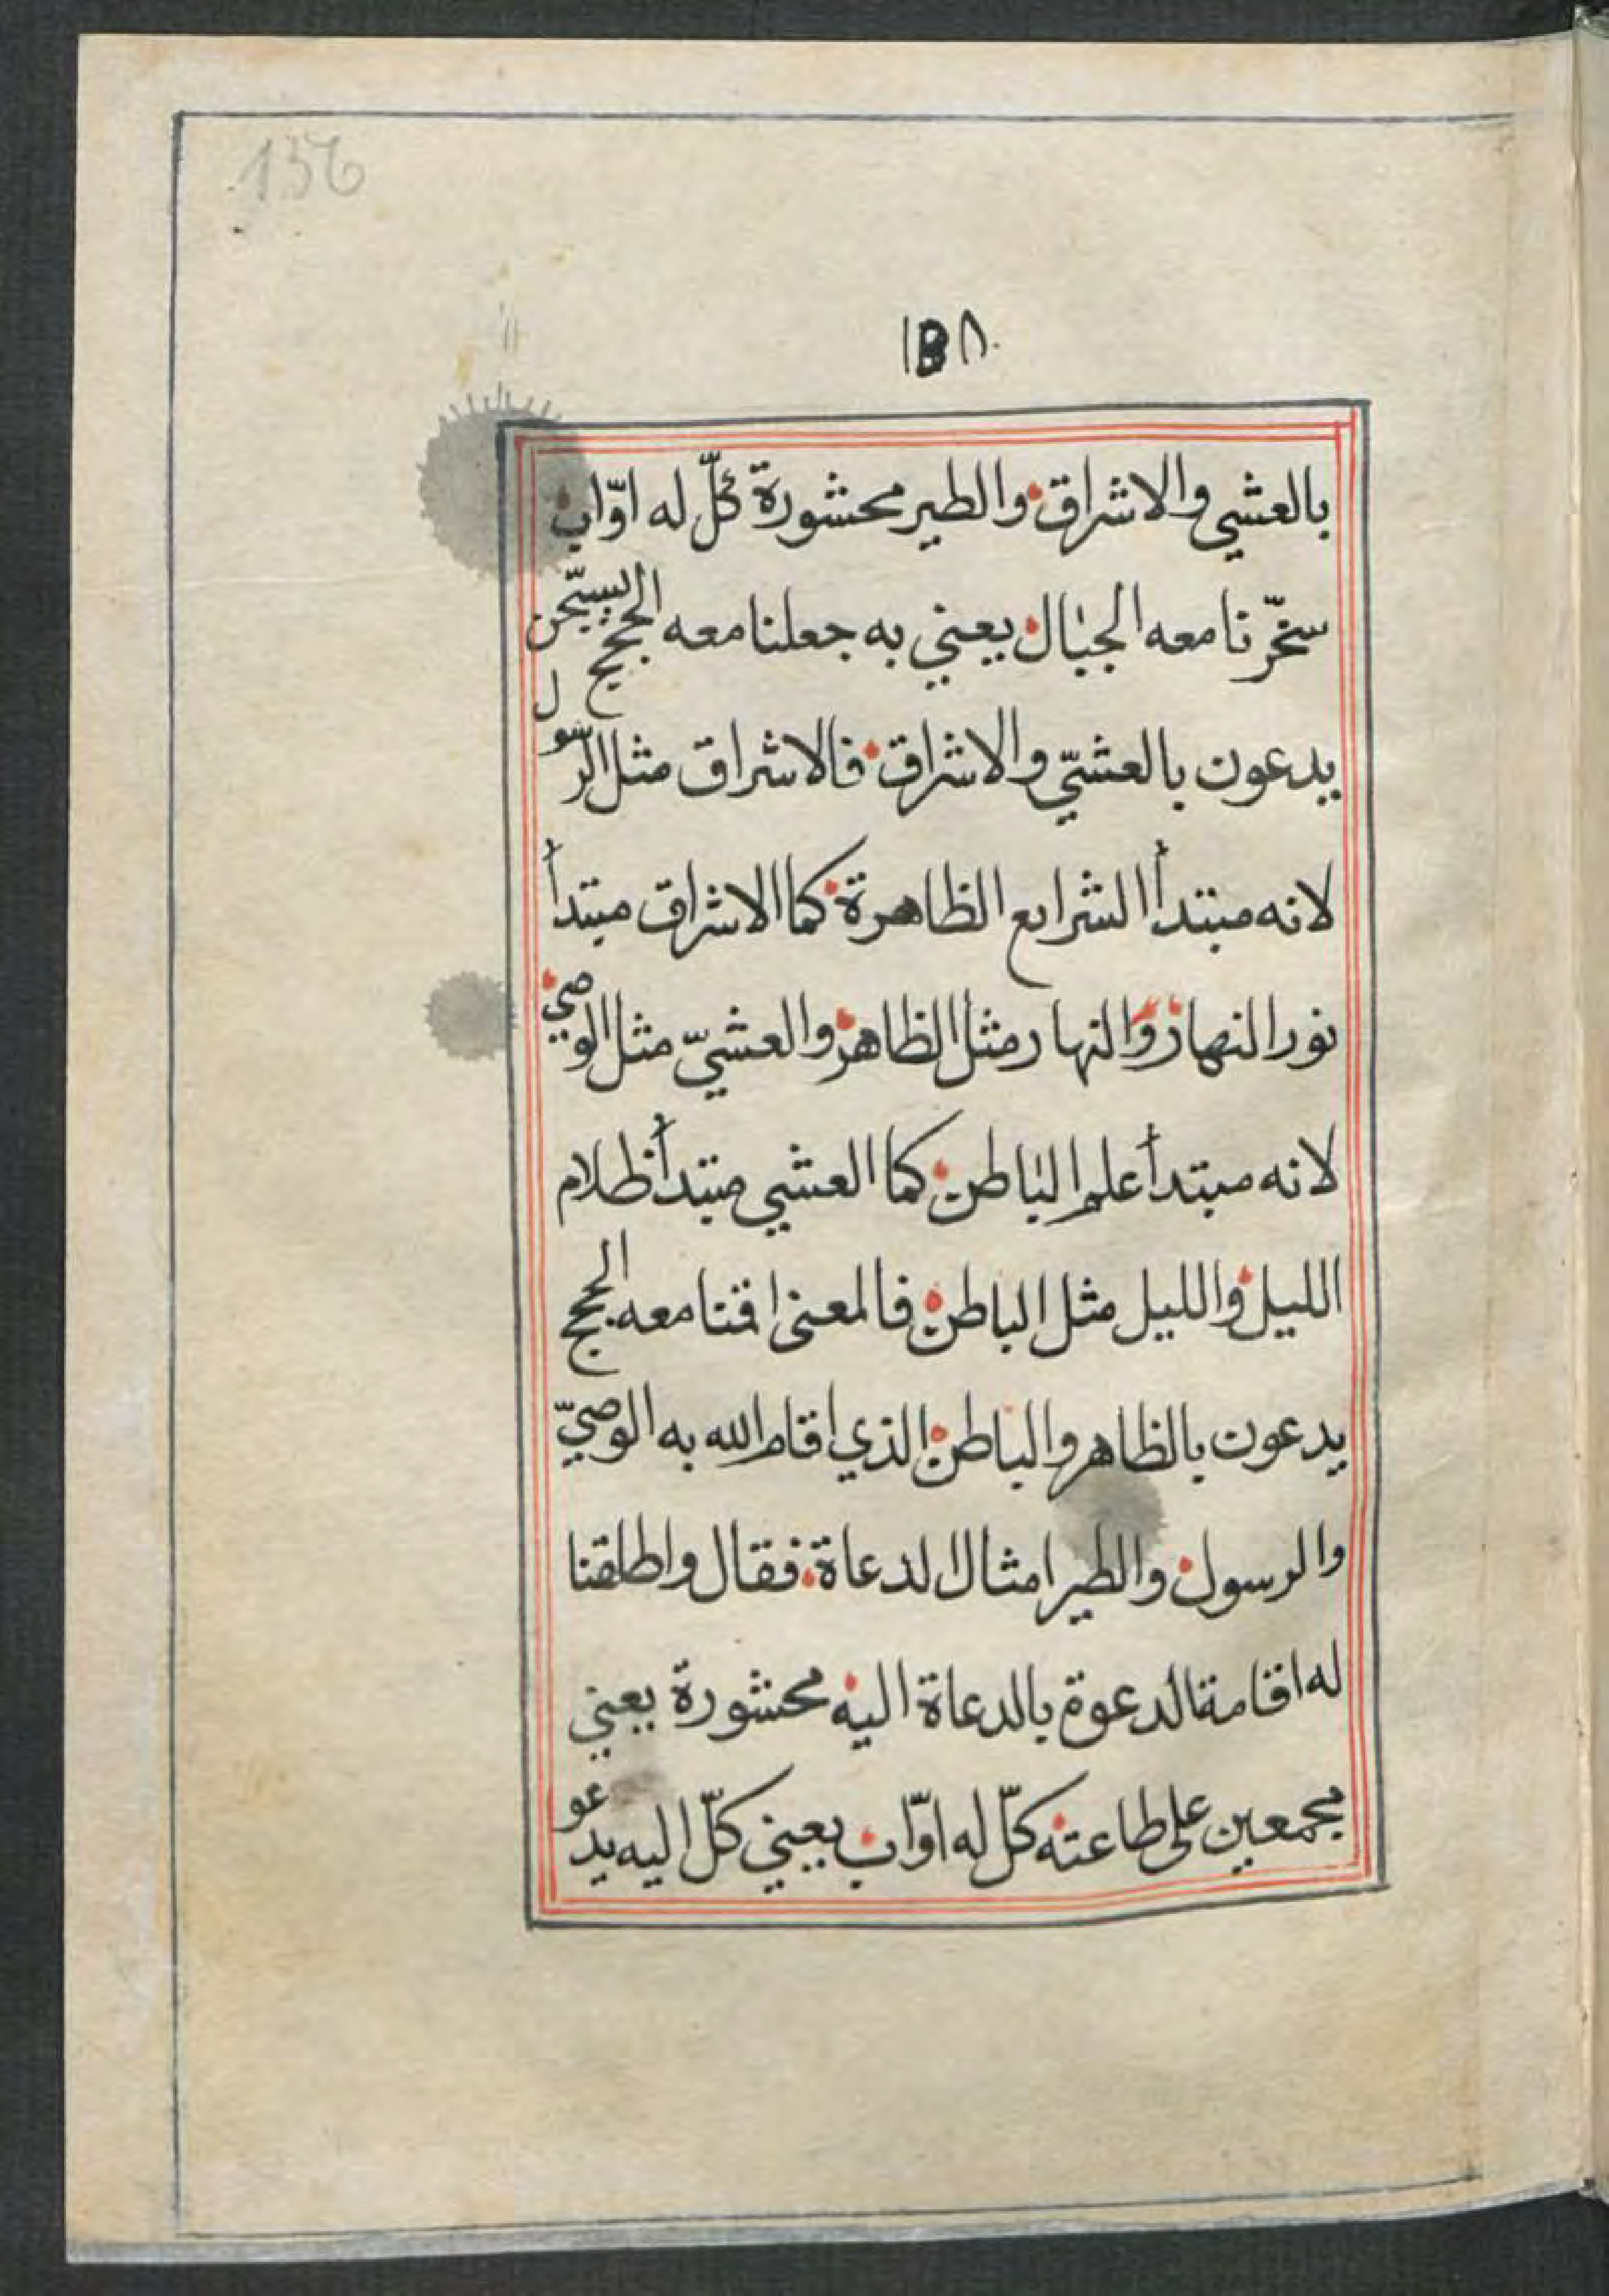 136
بالعشي والاشراق والطير محشورة كلّ له اوّاب
سخّرنا معه الجبال يعني به جعلنا معه الحجج يسبّحن
يدعون بالعشيّ والاشراق فالاشراق مثل الرّسول
لانه مبتدأ الشرايع الظاهرة كما الاشراق مبتدأ
نور النهار والنهار مثل الظاهر والعشيّ مثل الوصي
لانه مبتدأ علم الباطن كما العشي مبتدأ ظلام
الليل والليل مثل الباطن فالمعنى اقمنا معه الحجج
يدعون بالظاهر والباطن الذي اقام الله به الوصيّ
والرسول والطير امثال الدعاة فقال واطلقنا
له اقامة الدعوة بالدعاة اليه محشورة يعني
مجمعين على طاعته كلّ له اوّاب يعني كلّ اليه يدعو